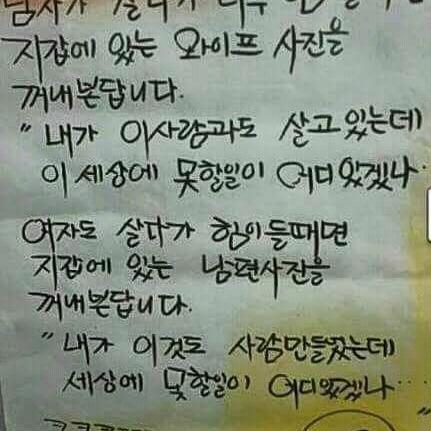 남자가 살다가 너무
지갑에 있는 와이프 사진을
꺼내본답니다.
" 내가 이사람과도 살고있는데
이 세상에 못할일이 어디있겠나..
여자도 살다가 힘이들때면
지갑에 있는 남편사진을
꺼내본답니다.
" 내가 이것도 사람만들었는데
세상에 못할일이 어디있겠나...
"